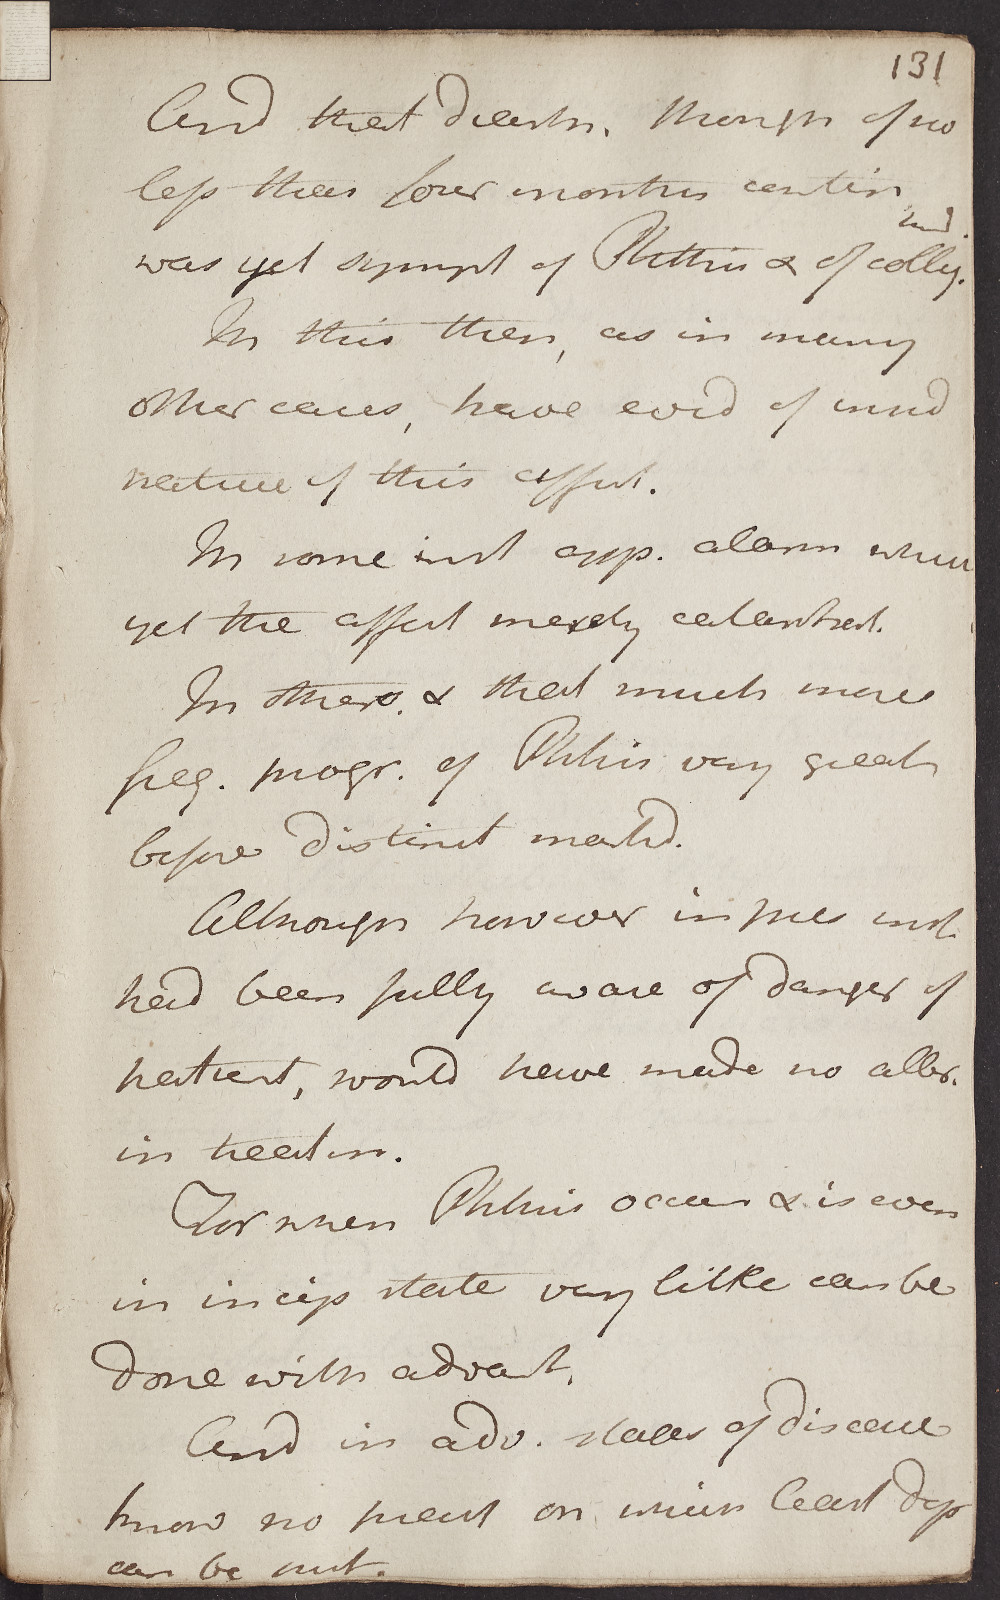 131
And that diarrh. though of no
less than four months contin
was yet sympt of Phthisis & of colliq.
In this then, as in many
other cases, have evid of insid
nature of this affect.
In some inst app. alarm when
yet the affect merely catarrhal.
In others. & that much more
freq. progr. of Phthis very great
before distinct markd.
Although however in pres inst.
had been fully aware of danger of
patient, would have made no alter.
in treatm.
For when Phthisis occurs & is even
in incip state very little can be
done with advant.
And in adv. states of disease
know no pract on which least dep
can be put.